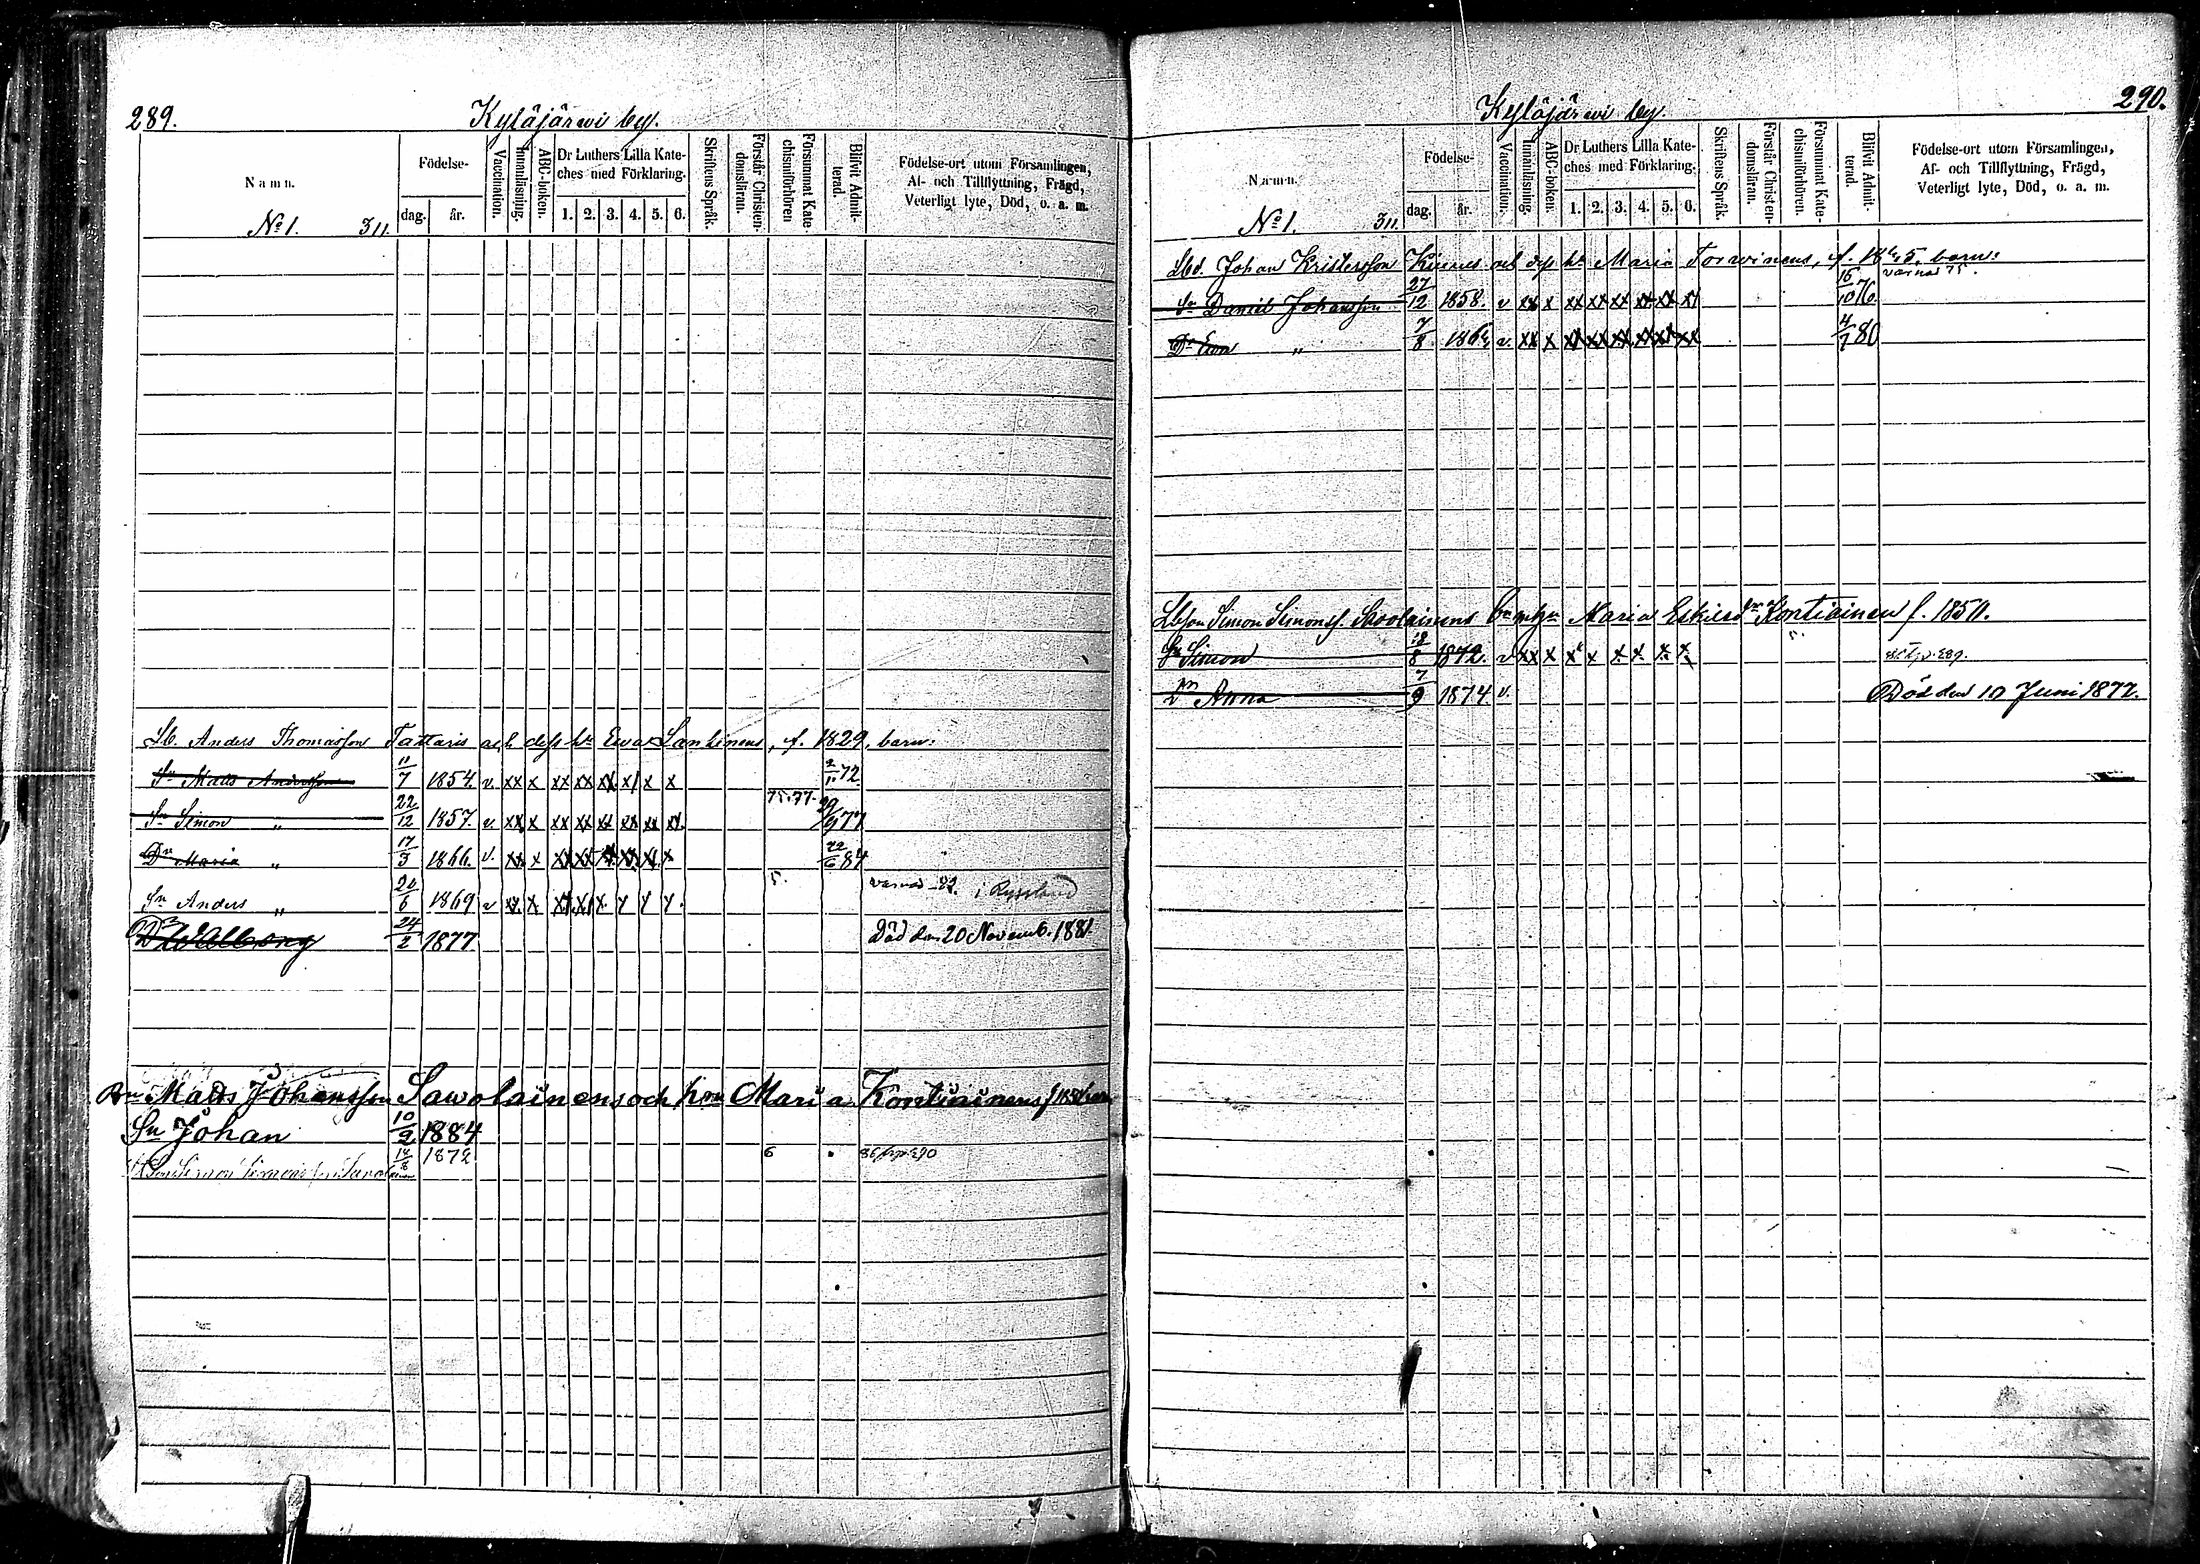 289.
Kyläjärwi by.
Namn.
Födelse-
dag. år.
Vaccination.
Innanläsning.
ABC-boken.
Dr Luthers Lilla Kate-
ches med Förklaring.
1. 2. 3. 4. 5. 6.
Skriftens Språk.
Förstår Christen-
domsläran.
Försummat Kate-
chismiförhören
Blifvit Admit-
terad.
Födelse-ort utom Församlingen,
Af- och Tillflyttning, Frägd,
Veterligt lyte, Död, o. a. m.
No 1. 311.
Lb. Anders Thomasson Tattaris och dess h. Ewa f. 1829, barn:
Sn Matts Andersson 11/7 1854. v. xx x xx xx xx x x x 2/11 72
Sn Simon " 22/12 1857. v. xx x xx xx xx xx xx xx. 75. 77. 29/9 77
Dr Maria " 17/3 1866. v. xx x xx xx xx xx x 22/6 84
Sn Anders " 20/6 1869 v xx x x x 5. i Ryssland
Dr Walborg 24/2 1877 Död den 20 Novemb. 1881
Bn Matts Johansson Sawolainens och hon Maria Kontiainens f 1850 barn
Sn Johan 10/2 1884
Simon Simonsson 18/8 1872 6
290.
Kyläjärwi by.
Namn.
Födelse-
dag. år.
Vaccination.
Innanläsning.
ABC-boken.
Dr Luthers Lilla Kate-
ches med Förklaring.
1. 2. 3. 4. 5. 6.
Skriftens Språk.
Förstår Christen-
domsläran.
Försummat Kate-
chismiförhören.
Blifvit Admit-
terad.
Födelse-ort utom Församlingen,
Af- och Tillflyttning, Frägd,
Veterligt lyte, Död, o. a. m.
No 1. 311.
Lbd. Johan Kristersson och dess h. Maria Torwinens, f. barn:
Sn Daniel Johansson 27/12 1858. v xx x xx xx xx xx xx xx 15/10 76.
Dr Ewa " 7/8 v. xx x xx xx xx xx xx xx 4/7 80
Lbson Simon Simonss. Sawolainens Maria Eskilsdr Kontiainen f. 1850.
Sn Simon 18/8 1872. v xx x x x x x x x
Dr Anna 7/9 1874. v. Död den 10 Juni 1877.